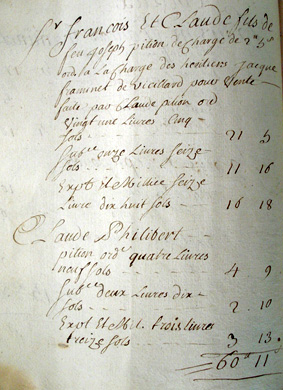 Sr françois Et Claude fils de
feu joseph pition de Charge de 2ᵉ 5ˢ
ord. a La Charge des heritiers jacque
framinet de vieillard pour Vente
faite par Claude pition ord
Vingt une Livres Cinq
sols 21 5
Subᵉ onze Livres Seize
sols 11 16
Expt Et Milice Seize
Livre dix huit sols 16 18
Claude Philibert
pition ordᵉ quatre Livres
neuf sols 4 9
Subᵉ deux Livres dix
sols 2 10
Expt Et Mil. trois livres
treize sols 3 13
60 11